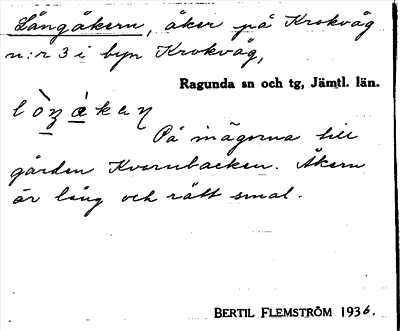 Långåkern, åker på Krokvåg
n:r 3 i byn Krokvåg,
Ragunda sn och tg, Jämtl. län.
På inägorna till
gården Kvarnbacken. Åkern
är lång och rätt smal.
BERTIL FLEMSTRÖM 1936.